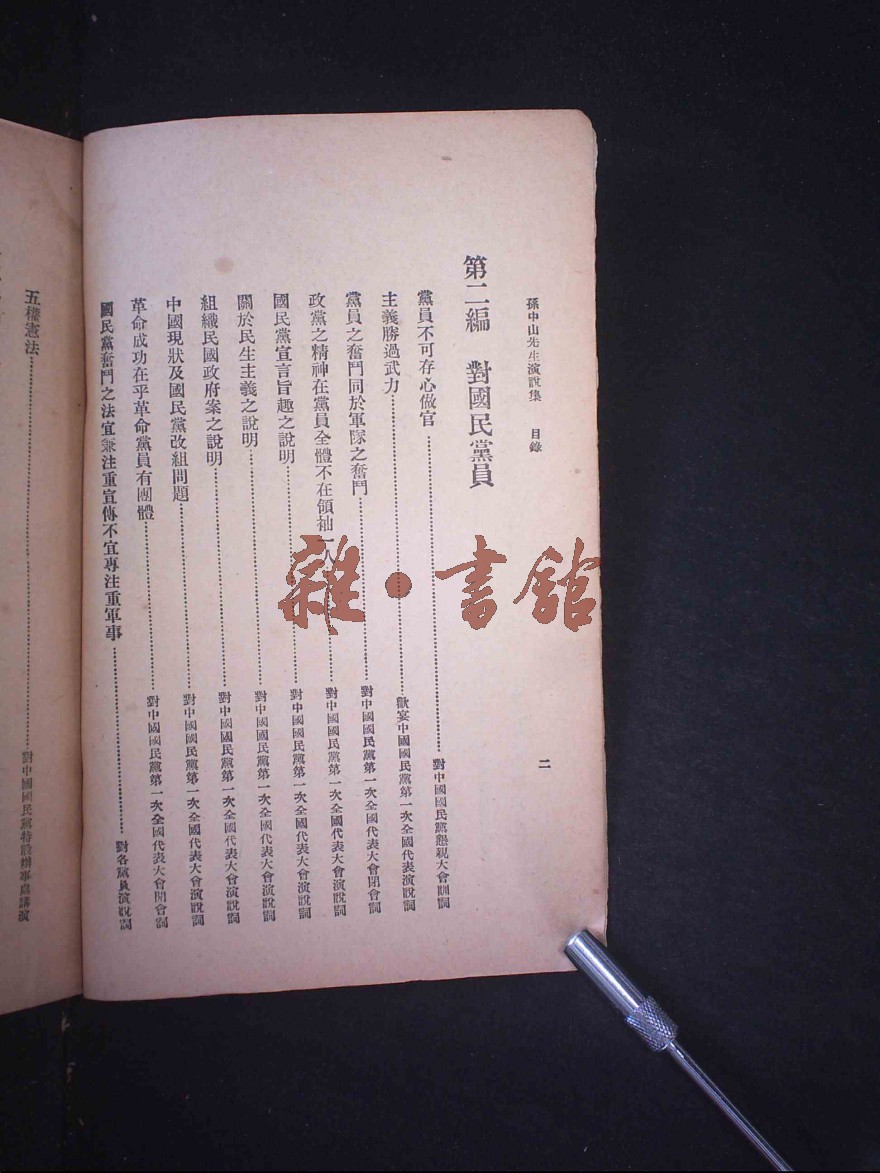 孫中山先生演說集　目錄
二
第二編　對國民黨員
黨員不可存心做官……對中國國民黨懇親大會訓詞
主義勝過武力……歡宴中國國民黨第一次全國代表演說詞
黨員之奮鬥同於軍隊之奮鬥……對中國國民黨第一次全國代表大會閉會詞
政黨之精神在黨員全體不在領袖一人……對中國國民黨第一次全國代表大會演說詞
國民黨宣言旨趣之說明……對中國國民黨第一次全國代表大會演說詞
關於民生主義之說明……對中國國民黨第一次全國代表大會演說詞
組織民國政府案之說明……對中國國民黨第一次全國代表大會演說詞
中國現狀及國民黨改組問題……對中國國民黨第一次全國代表大會演說詞
革命成功在乎革命黨員有團體……對中國國民黨第一次全國代表大會開會詞
國民黨奮鬥之法宜兼注重宣傳不宜專注重軍事……對各黨員演說詞
五權憲法……對中國國民黨特設辦事處講演
雜·書館